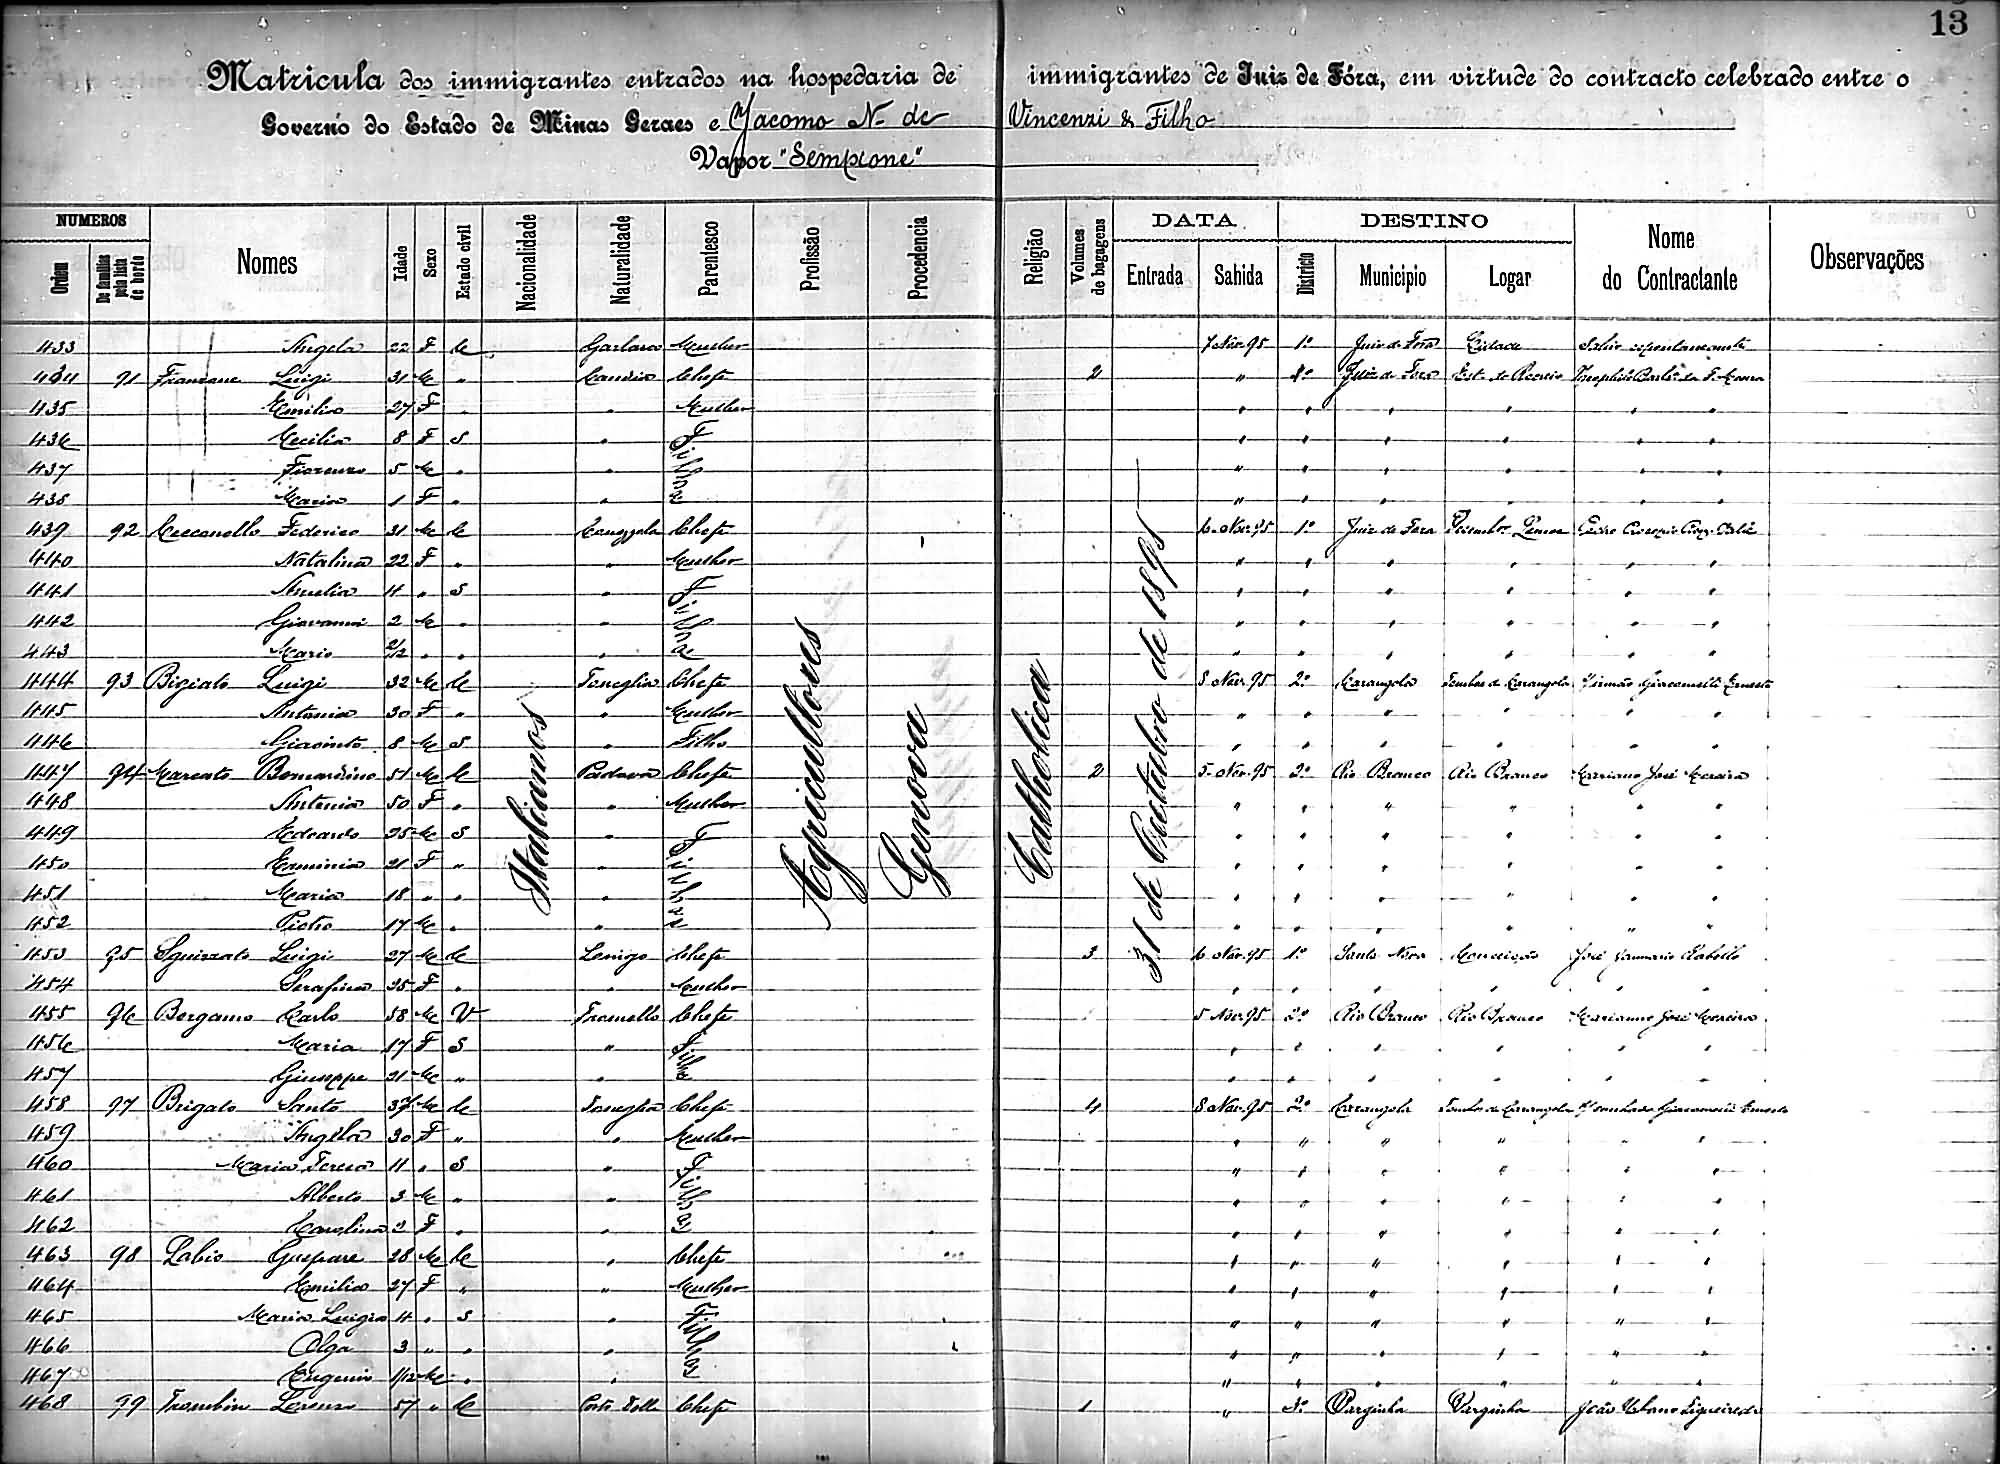 13
Matricula dos immigrantes entrados na hospedaria de immigrantes de Juiz de Fóra, em virtude do contracto celebrado entre o
Governo do Estado de Minas Geraes e Jacomo N. de Vincenzi & Filho
Vapor "Sempione"
NUMEROS Nomes Idade Sexo Estado civil Nacionalidade Naturalidade Parentesco Profissão Procedencia Religião Volumes de bagagens DATA DESTINO Nome do Contractante Observações
Ordem De familias pela lista de bordo Entrada Sahida Districto Municipio Logar
Italianos Agricultores Genova Catholica 31 de Outubro de 1895
433 Angela 22 F C Mulher 7 Nov. 95 1º Juiz de Fóra Cidade
434 91 Luigi 31 M " Candia Chefe 2 " Juiz de Fora
435 Emilia 27 F " " Mulher " " " " " "
436 Cecilia 8 F S " Filhos " " " " " "
437 Fiorenzo 5 M " " " " " " " "
438 Maria 1 F " " " " " " " "
439 92 Ceccanello Federico 31 M C Chefe 6 Nov. 95 1º Juiz de Fora
440 Natalina 22 F " " Mulher " " " " " "
441 Amelia 4 " S " Filhos " " " " " "
442 Giovanni 2 M " " " " " " " "
443 Mario 2/12 " " " " " " " " "
444 93 Bigiato Luigi 32 M C Chefe 8 Nov. 95 2º Carangola Tombos de Carangola
445 Antonia 30 F " " Mulher " " " " " "
446 Giacinto 8 M S " Filho " " " " " "
447 94 Marcato Bernardino 51 M C Padova Chefe 2 5 Nov. 95 2º Rio Branco Rio Branco Mariano José Moreira
448 Antonia 50 F " " Mulher " " " " " "
449 Edoardo 25 M S " Filhos " " " " " "
450 Erminia 21 F " " " " " " " "
451 Maria 18 " " " " " " " " "
452 Pietro 17 M " " " " " " " "
453 95 Squizzato Luigi 27 M C Lonigo Chefe 3 6 Nov. 95 1º Conceição José Januario Rabello
454 Serafina 25 F " " Mulher " " " " " "
455 96 Bergamo Carlo 58 M V Chefe 5 Nov. 95 2º Rio Branco Rio Branco Marianno José Moreira
456 Maria 17 F S " Filhos " " " " " "
457 Giuseppe 21 M " " " " " " " "
458 97 Brigato Santo 37 M C Chefe 4 8 Nov. 95 2º Carangola Tombos de Carangola
459 Angela 30 F " " Mulher " " " " " "
460 Maria Teresa 11 " S " Filhos " " " " " "
461 Alberto 3 M " " " " " " " "
462 Carolina 2 F " " " " " " " "
463 98 Labio Gaspare 28 M C " Chefe " " " " " "
464 Emilia 27 F " " Mulher " " " " " "
465 Maria Luigia 4 " S " Filhos " " " " " "
466 Olga 3 " " " " " " " " "
467 Eugenio 1/12 M " " " " " " " "
468 99 Trombin Lorenzo 57 " C Porto Tolle Chefe 1 " 3º Varginha Varginha João Urbano Figueiredo